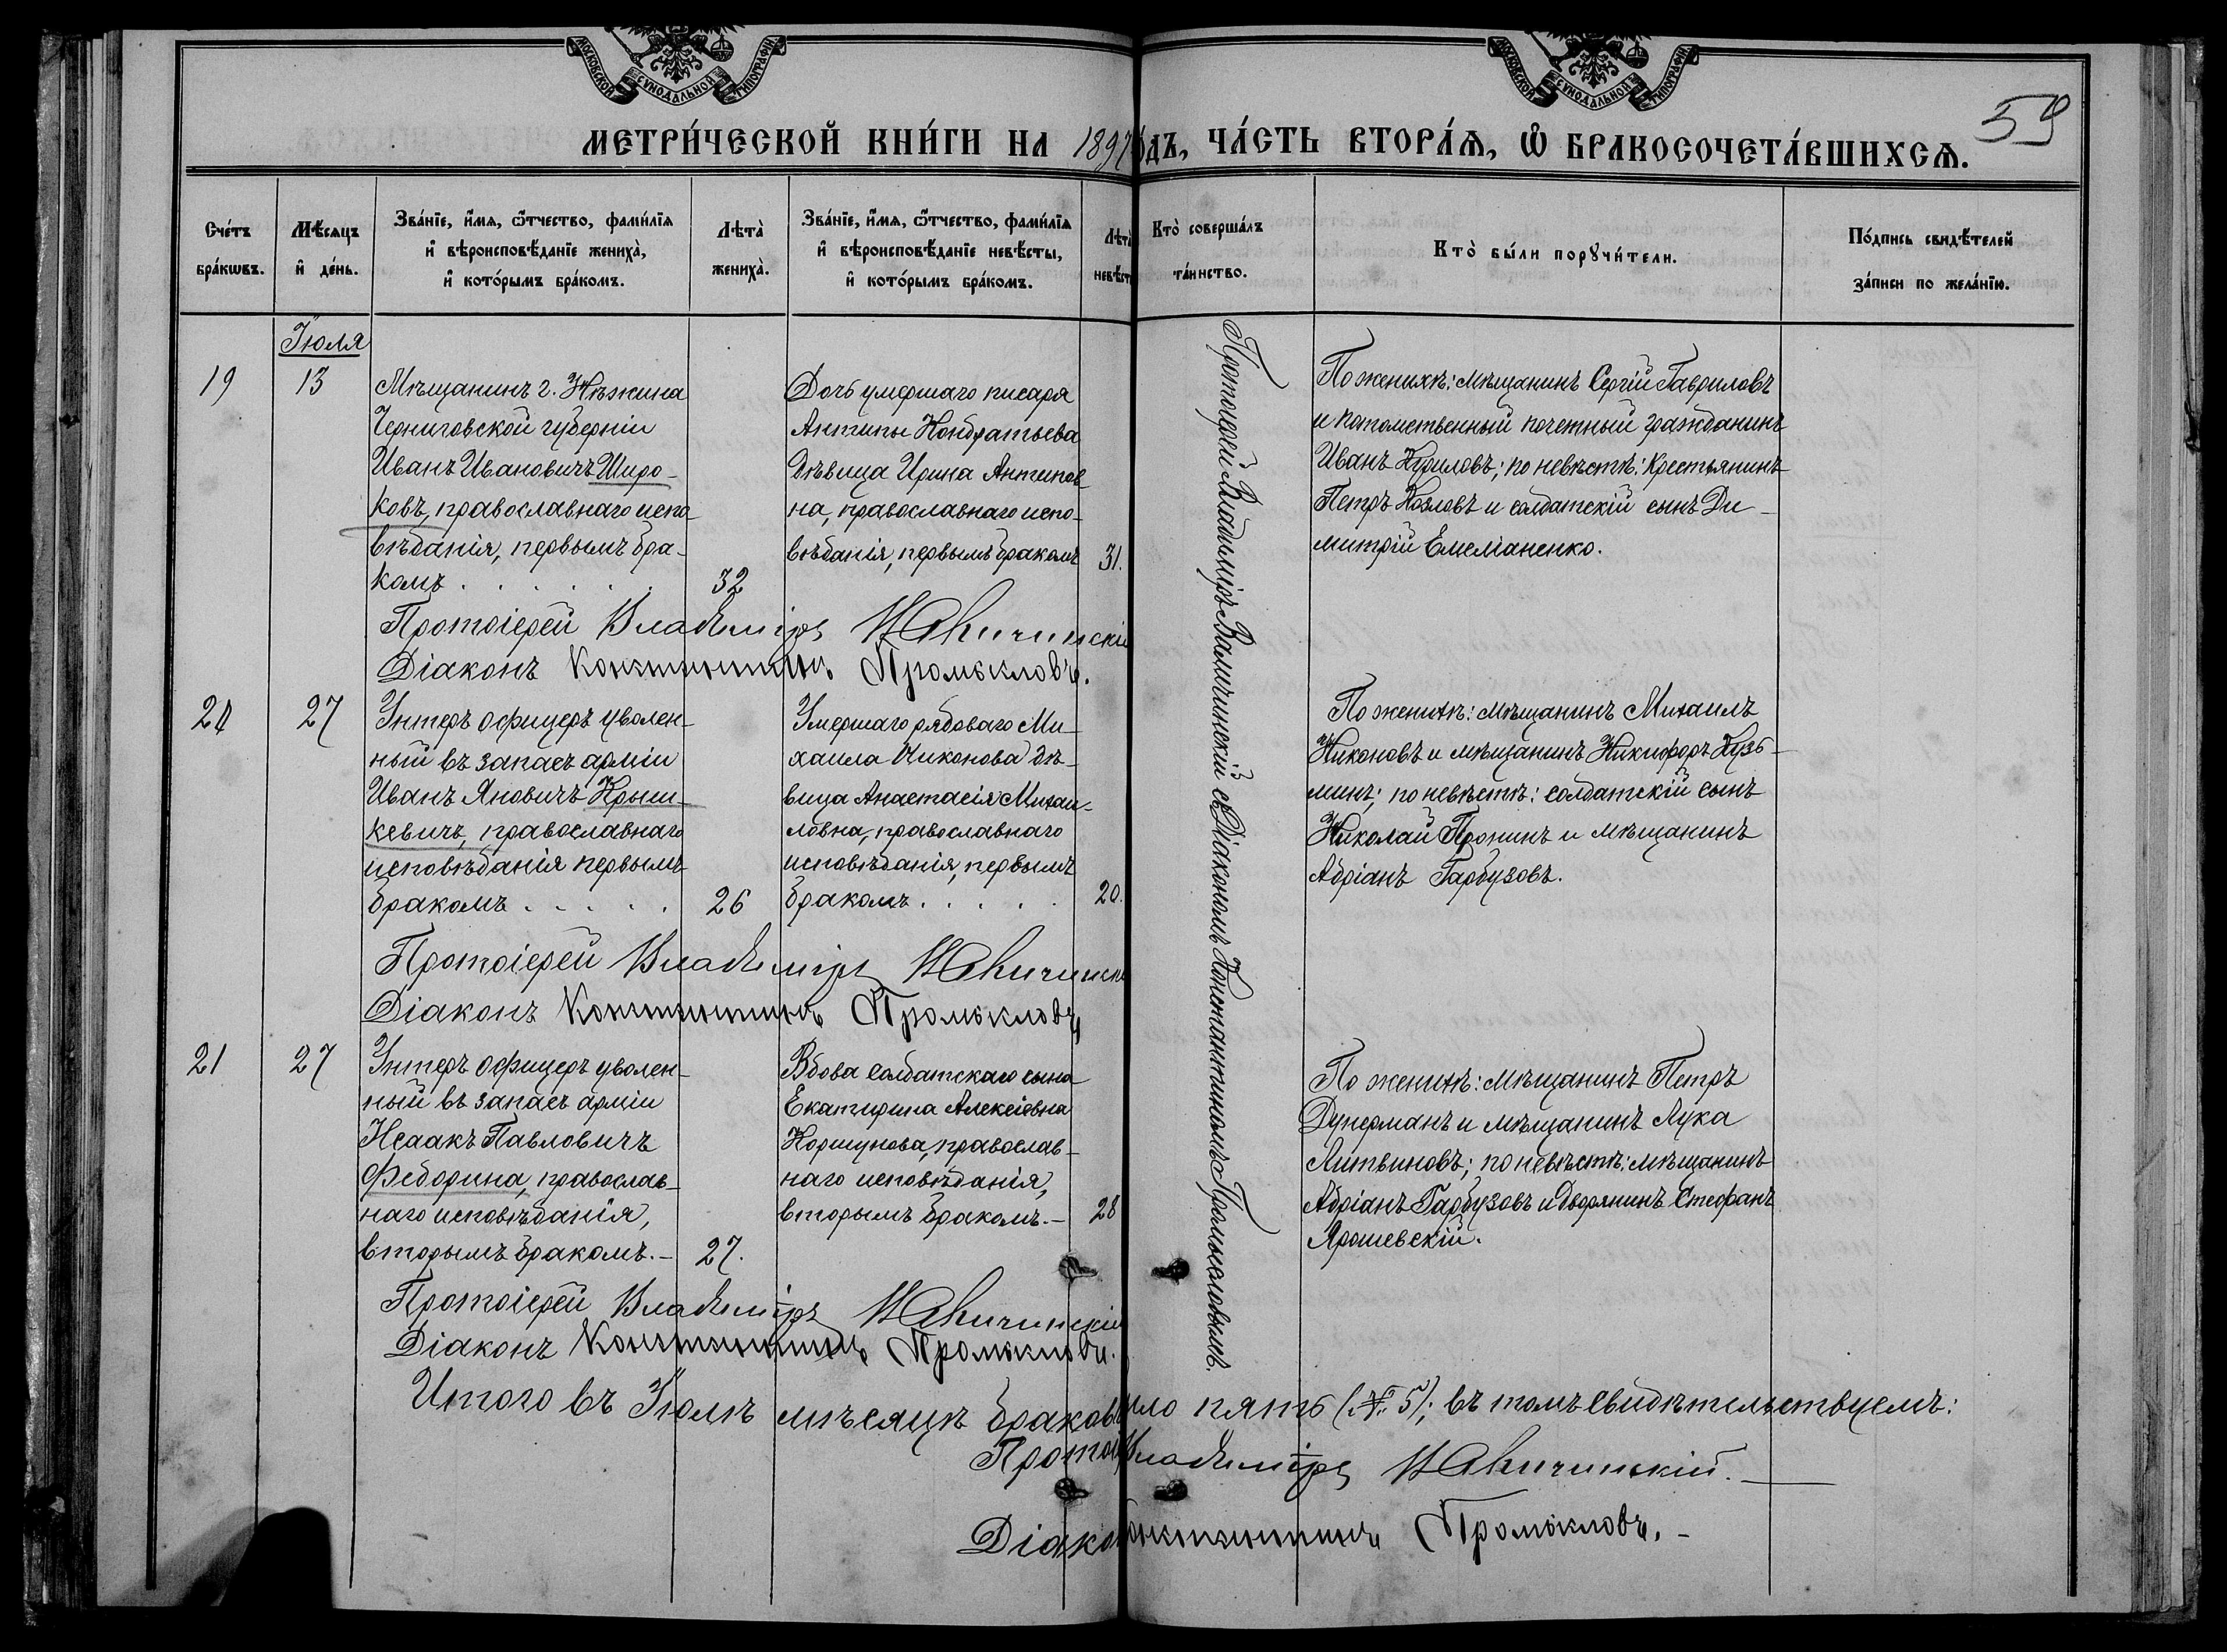 МОСКОВСКОЙ СѴНОДАЛЬНОЙ ТИПОГРАФІИ
МОСКОВСКОЙ СѴНОДАЛЬНОЙ ТИПОГРАФІИ
59
МЕТРИ́ЧЕСКОЙ КНИ́ГИ НА 1897 ГО́ДЪ, ЧА́СТЬ ВТОРА́Ѧ, Ѡ҆ БРАКОСОЧЕТА́ВШИХСѦ.
Сче́тъ
бра́кѡвъ.
Мѣ́сѧцъ
и҆ де́нь.
Зва́нїе, и҆́мѧ, ѻ҆́тчество, фами́лїѧ
и҆ вѣроисповѣ́данїе жениха̀,
и҆ кото́рымъ бра́комъ.
Лѣта̀
жениха̀.
Зва́нїе, и҆́мѧ, ѻ҆́тчество, фами́лїѧ
и҆ вѣроисповѣ́данїе невѣ́сты,
и҆ кото́рымъ бра́комъ.
Лѣта̀
невѣ́ст
Кто̀ соверша́лъ
та́инство.
Кто̀ бы́ли порꙋчи́тели.
По́дпись свидѣ́телей
за́писи по жела́нїю.
Іюля
19
13
Мѣщанинъ г. Нѣжина
Черниговской губерніи
Иванъ Ивановичъ Широ-
ковъ, православнаго испо-
вѣданія, первымъ бра-
комъ . . . . . .
32
Дочь умершаго писаря
Антипы Кондратьева
Дѣвица Ирина Антипов-
на, православнаго испо-
вѣданія, первымъ бракомъ
31.
Протоіерей Владиміръ Валичинскій съ Діакономъ Константиномъ Промысловымъ.
По женихѣ: мѣщанинъ Сергій Гавриловъ
и потомственный почетный гражданинъ
Иванъ Куриловъ; по невѣстѣ: Крестьянинъ
Петръ Козловъ и солдатскій сынъ Ди-
митрій Емеліаненко.
Протоіерей Владиміръ Валичинскій
Діаконъ Константинъ Промысловъ.
20
27
Унтеръ офицеръ уволен-
ный въ запасъ арміи
Иванъ Яновичъ Крыш-
кевичъ, православнаго
исповѣданія первымъ
бракомъ . . . . .
26
Умершаго рядоваго Ми-
хаила Никонова дѣ-
вица Анастасія Михаи-
ловна, православнаго
исповѣданія, первымъ
бракомъ . . . . .
20.
По женихѣ: мѣщанинъ Михаилъ
Никоновъ и мѣщанинъ Никифоръ Кузь-
минъ; по невѣстѣ: солдатскій сынъ
Николай Пронинъ и мѣщанинъ
Адріанъ Гарбузовъ.
Протоіерей Владиміръ Валичинскі
Діаконъ Константинъ Промысловъ,
21
27
Унтеръ офицеръ уволен-
ный въ запасъ арміи
Исаакъ Павловичъ
Федорина, православ-
наго исповѣданія,
вторымъ бракомъ.-
27.
Вдова солдатскаго сына
Екатерина Алексіевна
Коршунова, православ-
наго исповѣданія,
вторымъ бракомъ.-
28
По женихѣ: мѣщанинъ Петръ
Дуперманъ и мѣщанинъ Лука
Литвиновъ; по невѣстѣ: мѣщанинъ
Адріанъ Гарбузовъ и Дворянинъ Стефанъ
Ярошевскій.
Протоіерей Владиміръ Валичинскій
Діаконъ Константинъ Промысловъ.
Итого въ Іюлѣ мѣсяцѣ браковъ ыло пять (№ 5); въ томъ свидѣтельствуемъ:
Протоі Владиміръ Валичинскій.-
Діако онстантинъ Промысловъ.-